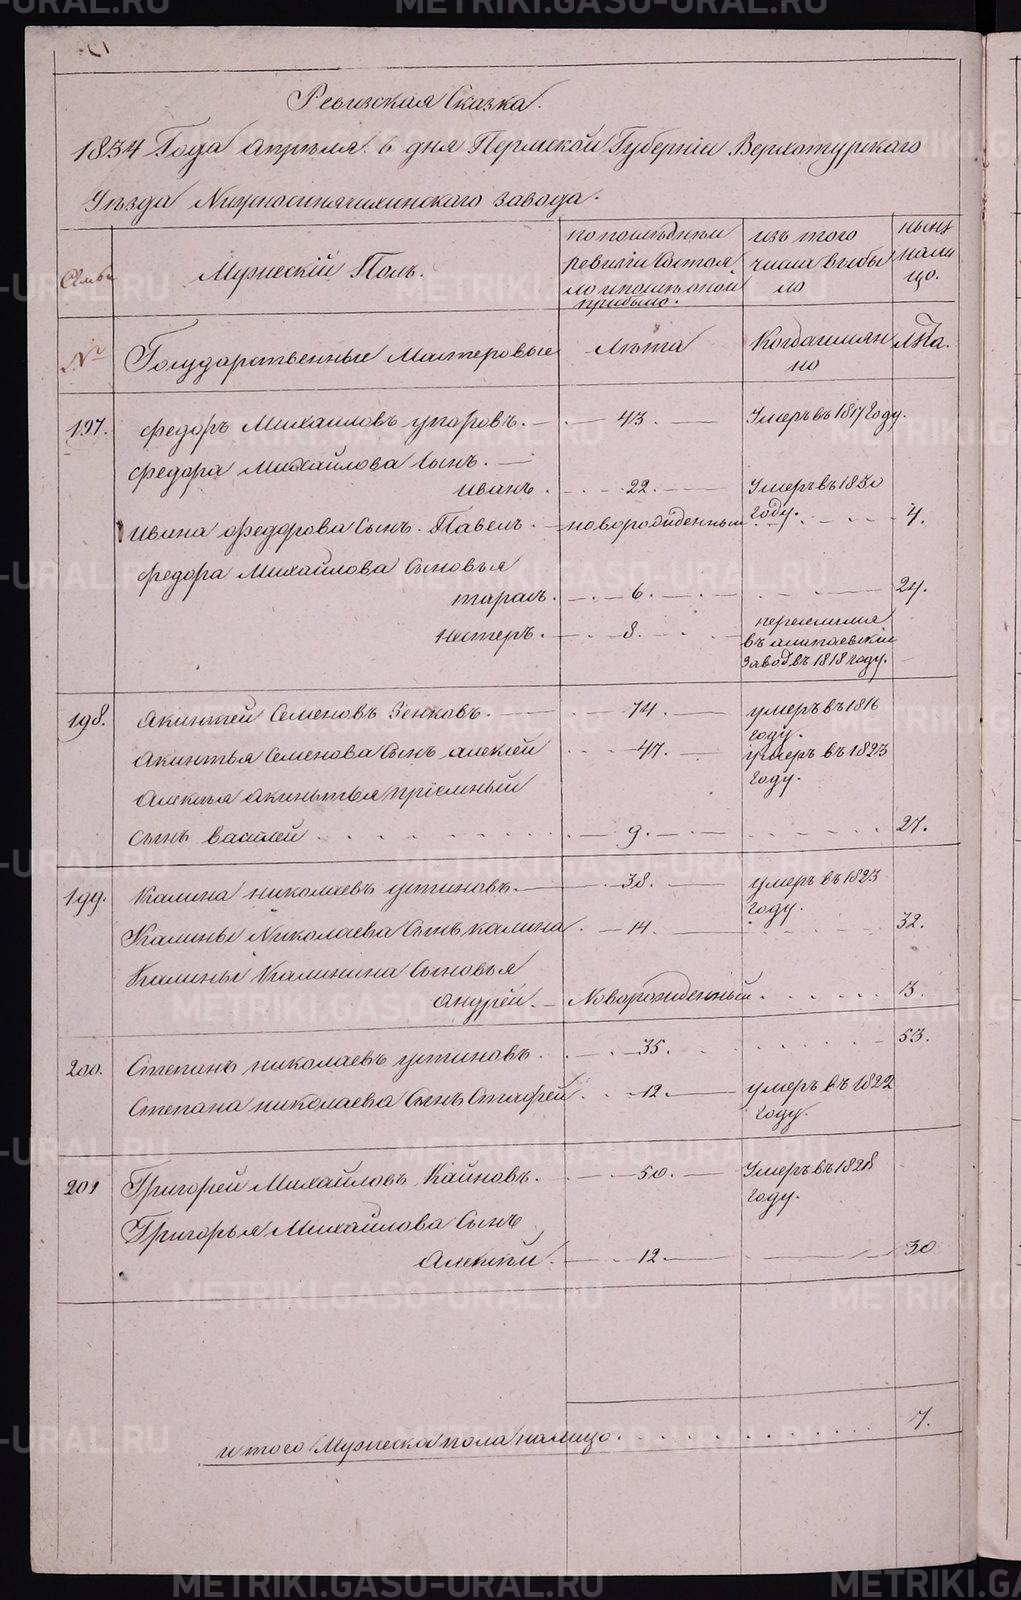 Ревизская Сказка.
1834 Года апреля 6 дня Пермской Губерніи Верхотурскаго
Уѣзда Нижносинячихинскаго завода.
Семьи
Мужескій Полъ.
по последней ревизіи состояло и после оной прибыло.
изъ того числа выбыло
ныне налицо.
№
Государственные Мастеровые
Лѣта
Когда именно
Лѣта.
197. Федоръ Михайловъ упоровъ. 43. Умеръ въ 1817 году.
Федора Михайлова Сынъ.
иванъ. 22. Умеръ въ 1830 году.
ивана федорова Сынъ. Павелъ. новорожденный 4.
федора Михайлова Сыновья
тарасъ. 6. 24.
нестеръ. 8. переселился
въ алапаевскій
завод въ 1818 году.
198. акинтей Семеновъ Зенковъ. 74. умеръ въ 1816 году.
акинтья Семенова Сынъ алексей 47. умеръ въ 1823 году.
алексея акинтья пріемный
Сынъ василей 9. 27.
199. Калина николаевъ устиновъ. 38. умеръ въ 1823 году.
Калины Николаева Сынъ калина 14. 32.
Калины Калинина Сыновья
андрей. Новорожденный 3.
200. Степанъ николаевъ устиновъ. 35. 53.
Степана николаева Сынъ Стафей 12. умеръ въ 1822 году.
201 Григорей Михайловъ Кайновъ. 50. Умеръ въ 1828 году.
Григорья Михайлова Сынъ
Алексей. 12. 30
итого Мужеска пола налицо. 7.
METRIKI.GASO-URAL.RU